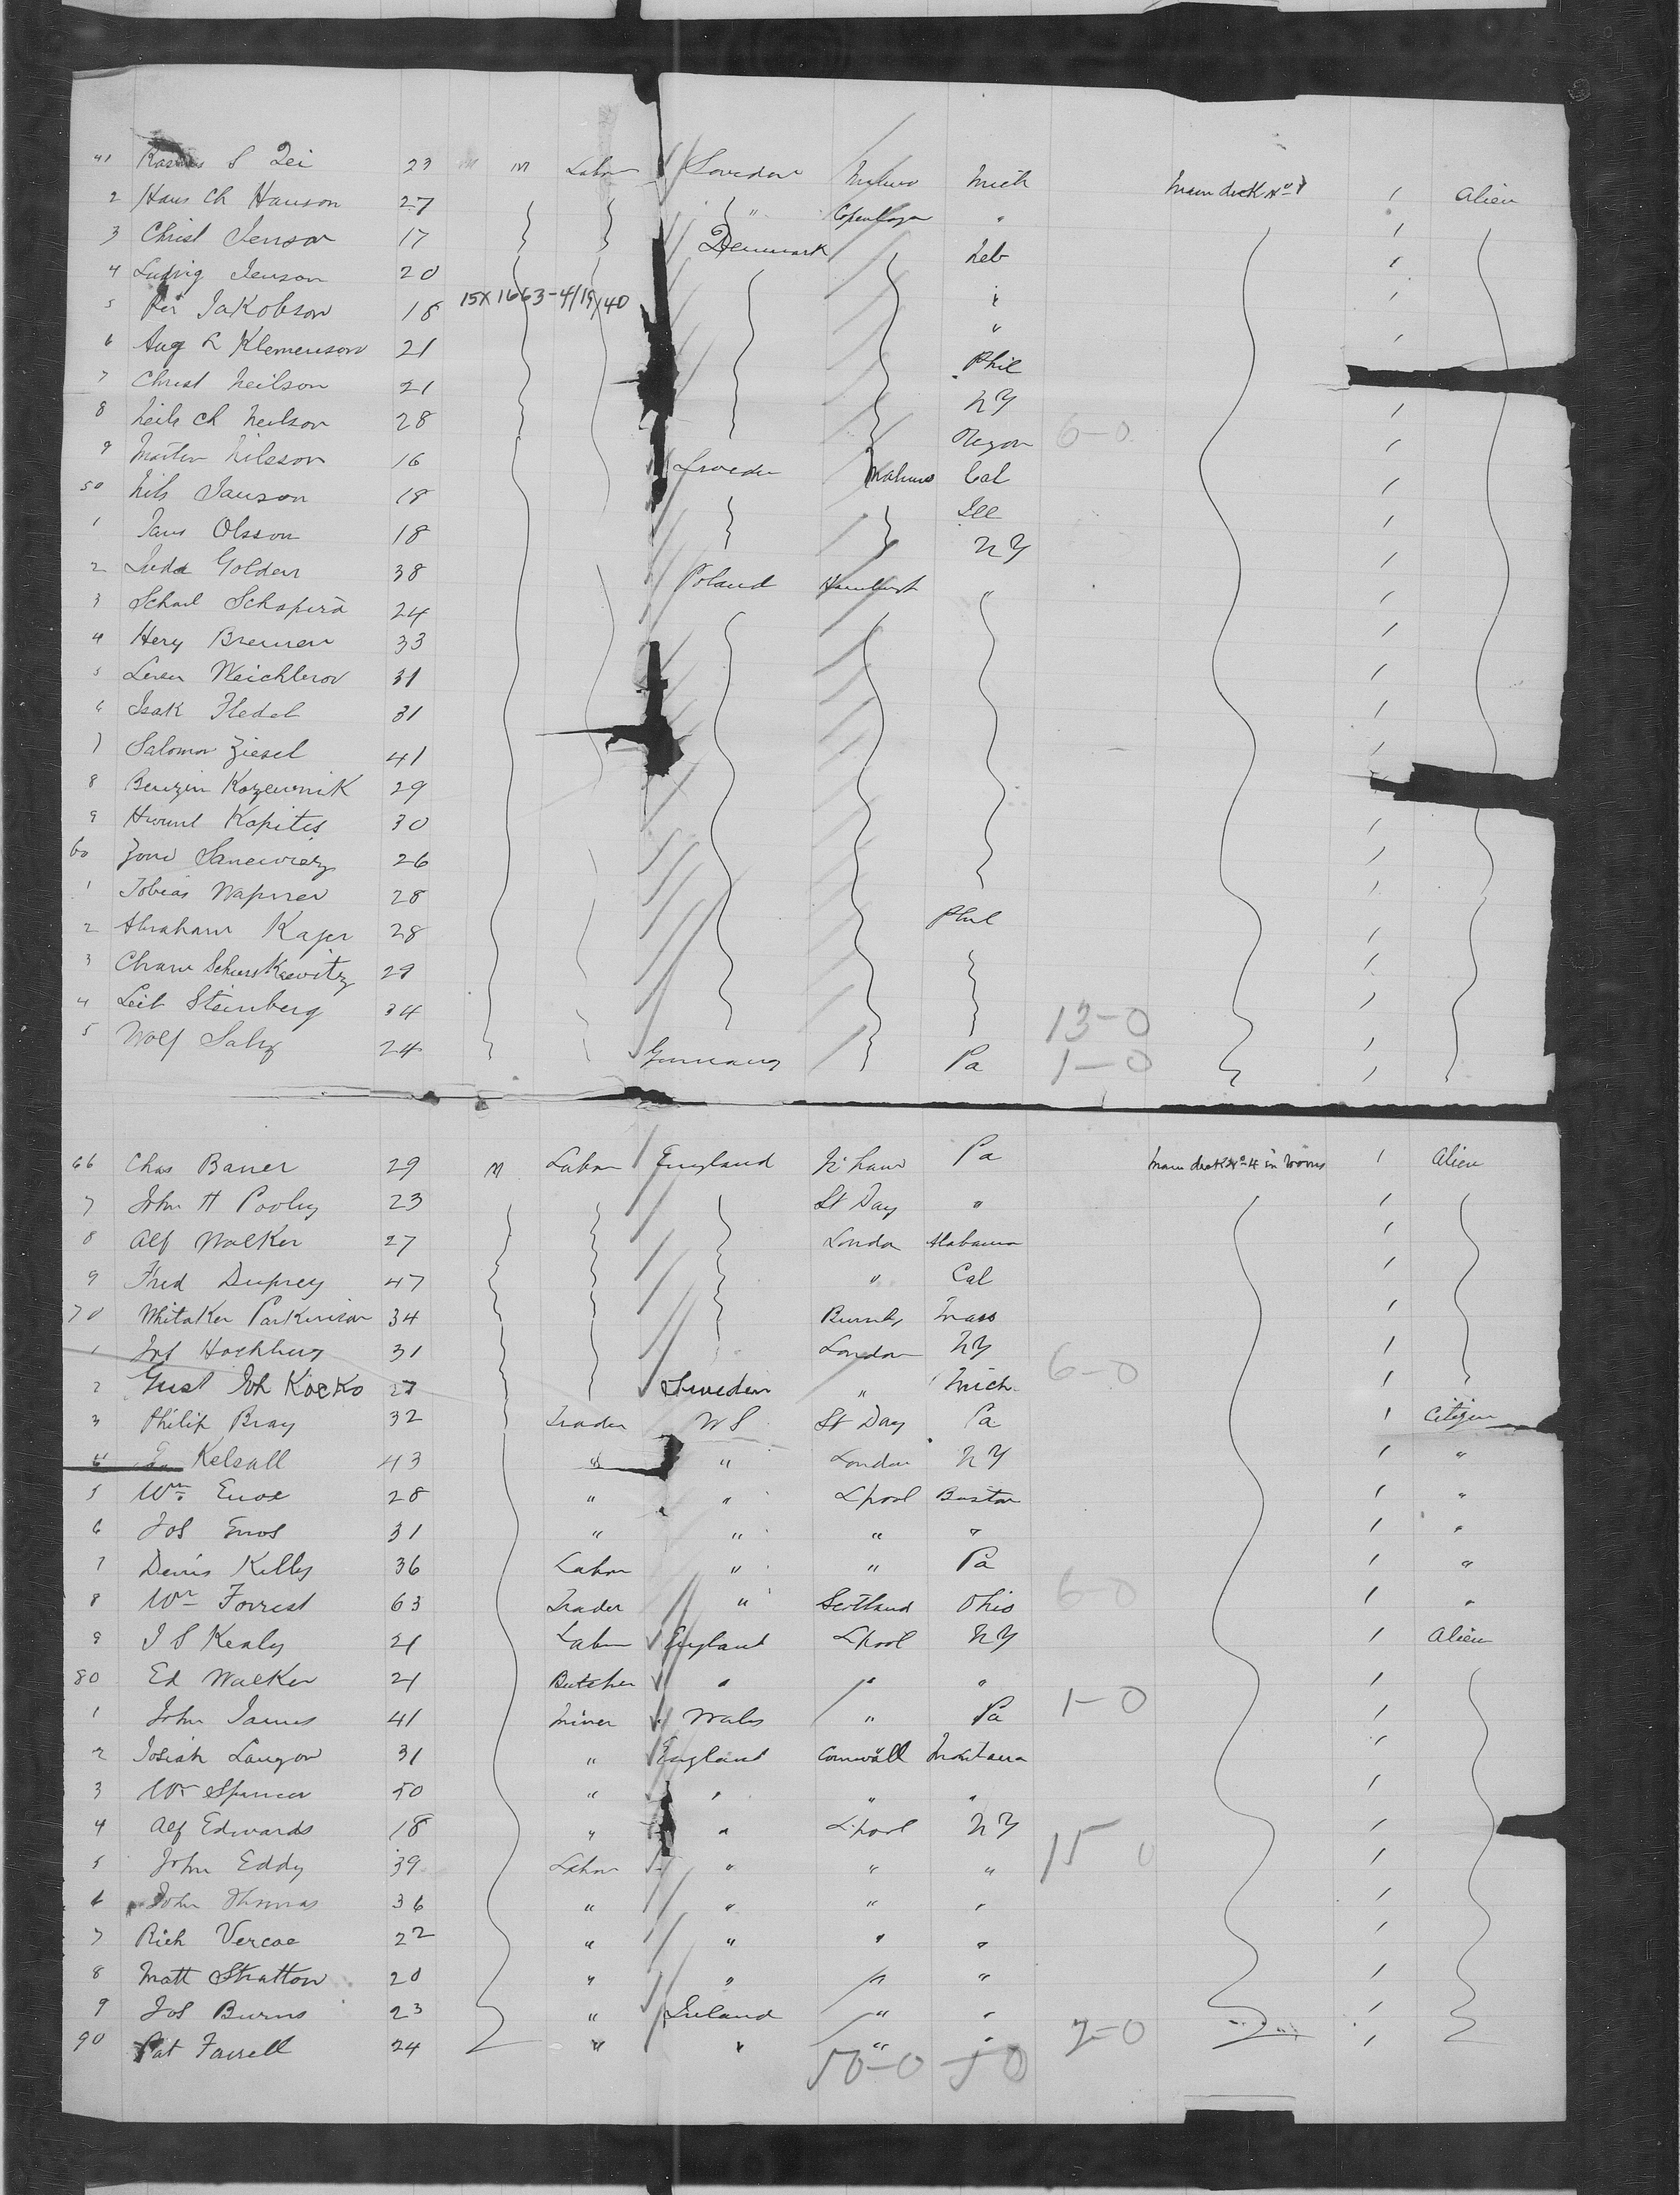 41 S Lei 23 M Labor Sweden Malmo Mich Main deck No 1 1 Alien
2 Hans Ch Hanson 27 " Copenhagen " 1
3 Christ Jenson 17 Denmark Neb 1
4 Ludvig Jenson 20 " 1
5 Per Jakobson 18 15X1663-4/19/40 " 1
6 Aug L Klemenson 21 Phil
7 Christ Neilson 21 NY 1
8 Neils Ch Neilson 28 Oregon 6-0 1
9 Martin Nilsson 16 Sweden Malmo Cal 1
50 Nils Janson 18 Ill 1
1 Jans Olsson 18 NY 1
2 Juda Golden 38 Poland Hamburg " 1
3 Schapira 24 1
4 Hery Bremen 33 1
5 31 1
6 Isak Fledel 31 1
7 Salomon Ziesel 41
8 Benzin Kozewnik 29 1
9 Kopites 30 1
60 26 1
1 Tobias 28 1
2 Abraham Kajer 28 Phil 1
3 29 1
4 Leib Steinberg 34 13-0 1
5 Wolf 24 Germany Pa 1-0 1
66 Chas Baner 29 M Labor England Pa Main deck No 4 in rooms 1 Alien
7 John H Pooley 23 St Day " 1
8 Alf Walker 27 London Alabama 1
9 Fred Duprey 47 " Cal 1
70 Whitaker Parkinson 34 Burnley Mass 1
1 Hochburg 31 London NY 6-0 1
2 Gust Joh Kocko 27 Sweden " Mich 1
3 Philip Bray 32 Trader US St Day Pa 1 Citizen
4 Kelsall 43 " " London NY 1 "
5 Wm Enoe 28 " " Lpool Boston 1 "
6 Jos Enos 31 " " " " 1 "
7 Denis Kelly 36 Labor " " Pa 1 "
8 Wm Forrest 63 Trader " Scotland Ohio 6-0 1 "
9 J S Kealy 21 Labor England Lpool NY 1 Alien
80 Ed Walker 21 Butcher " " " 1
1 John James 41 Miner Wales " Pa 1-0 1
2 Josiah Langon 31 " England Cornwall Montana 1
3 Wm Spencer 50 " " " " 1
4 Alf Edwards 18 " " Lpool NY 1
5 John Eddy 39 Labor " " " 15 0 1
6 John Thomas 36 " " " " 1
7 Rich Vercoe 22 " " " " 1
8 Matt Stratton 20 " " " " 1
9 Jos Burns 23 " Ireland " " 1
90 Pat Farrell 24 " " " " 2-0 1
50-0